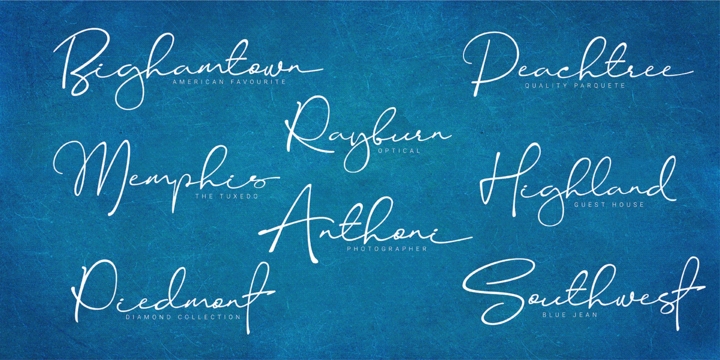 Bighamtown
AMERICAN FAVOURITE
Peachtree
QUALITY PARQUETE
Rayburn
OPTICAL
Memphis
THE TUXEDO
Highland
GUEST HOUSE
Anthoni
PHOTOGRAPHER
Piedmont
DIAMOND COLLECTION
Southwest
BLUE JEAN